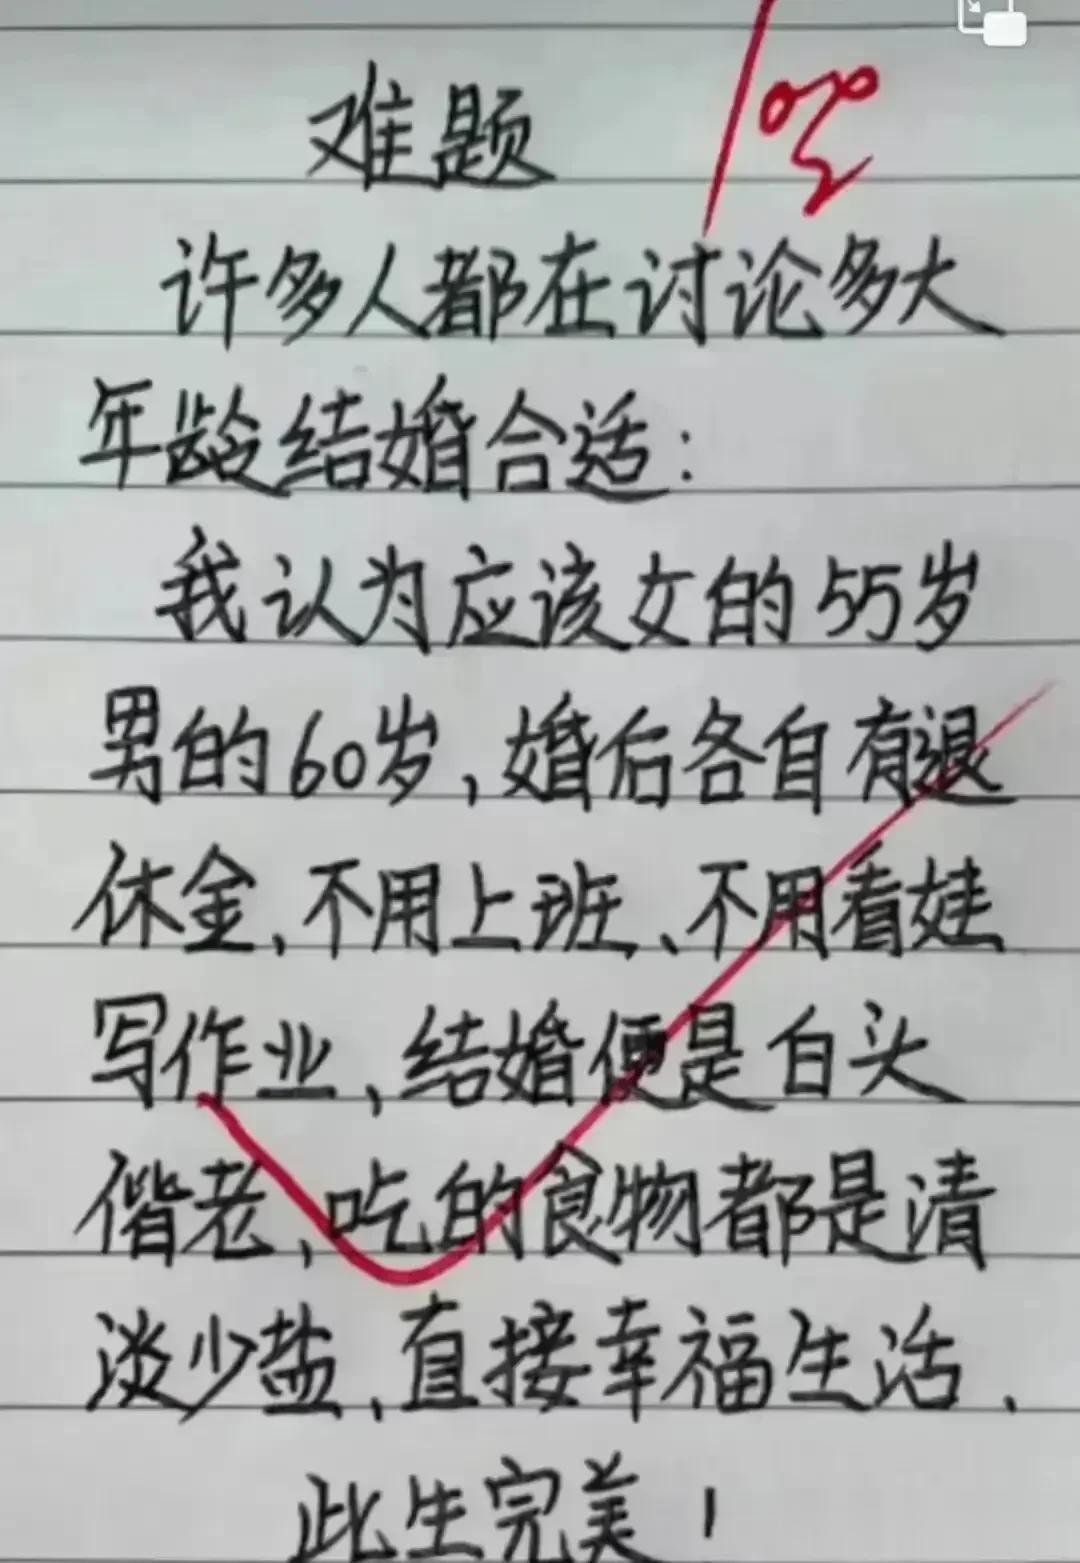 难题
100
许多人都在讨论多大
年龄结婚合适:
我认为应该女的55岁
男的60岁,婚后各自有退
休金、不用上班、不用看娃
写作业,结婚便是白头
偕老,吃的食物都是清
淡少盐,直接幸福生活.
此生完美!